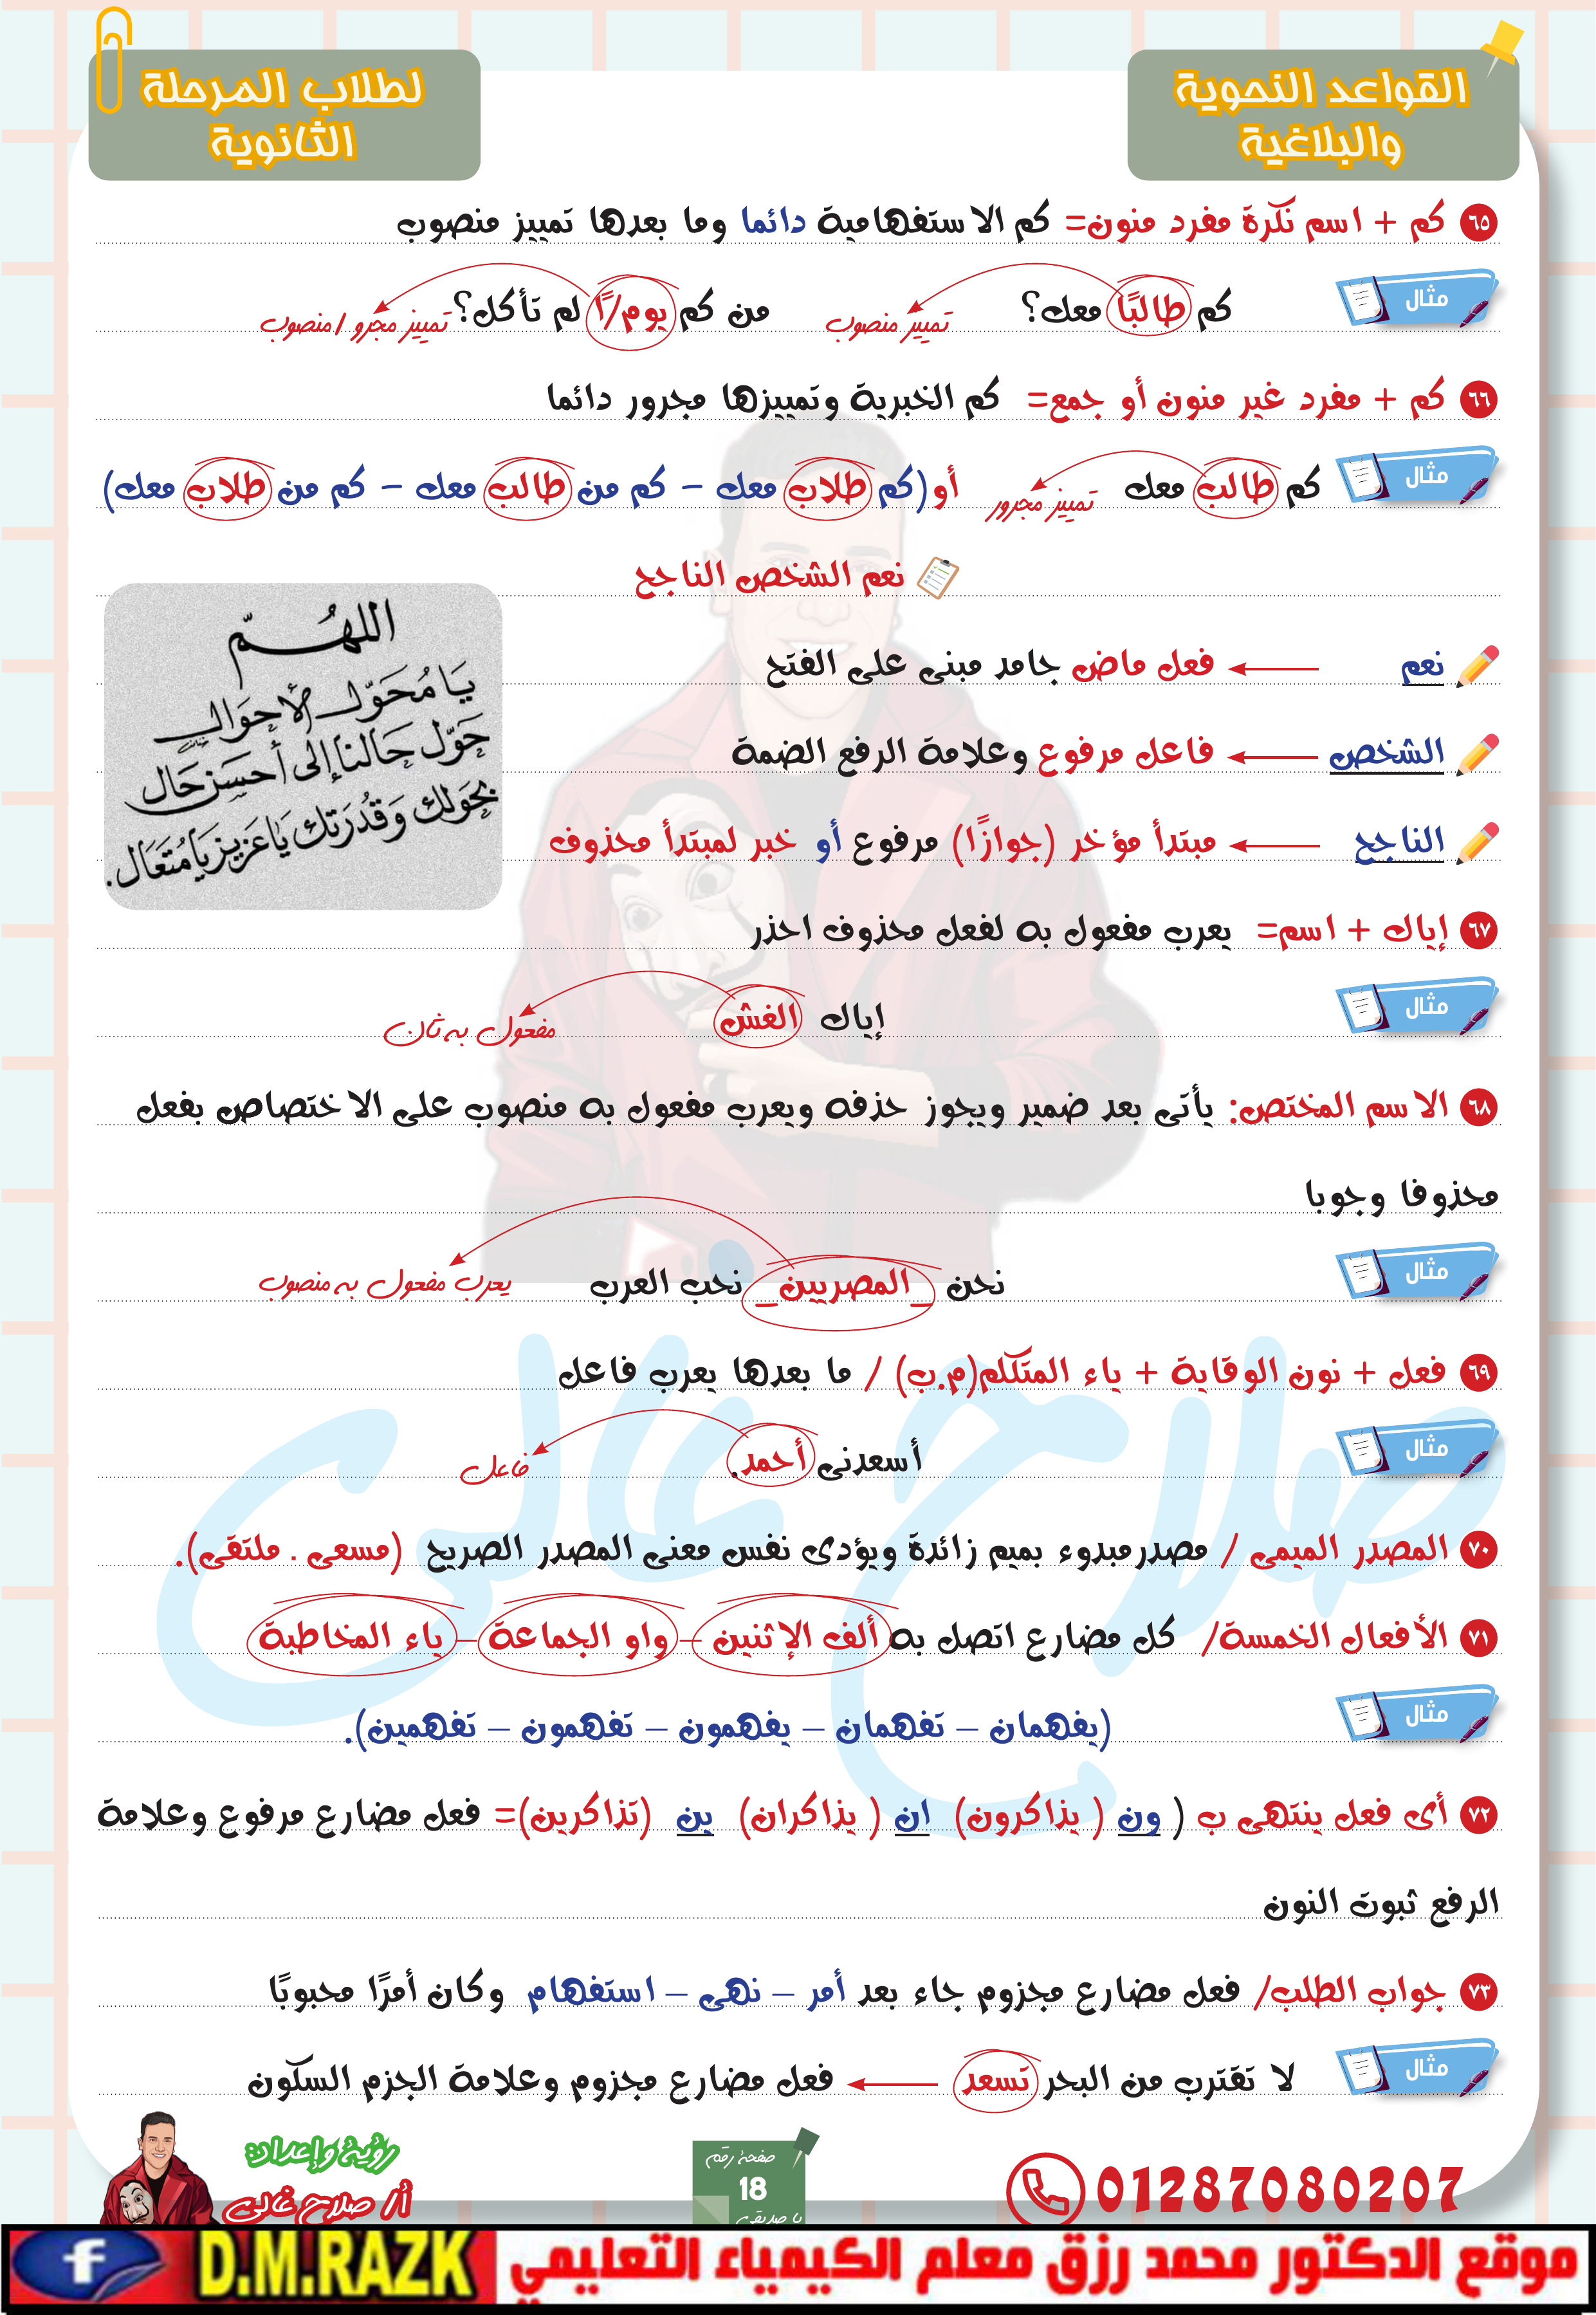 القواعد النحوية
والبلاغية
لطلاب المرحلة
الثانوية
٦٥ كم + اسم نكرة مفرد منون= كم الاستفهامية دائما وما بعدها تمييز منصوب
مثال كم طالبًا معك؟ تمييز منصوب من كم يوم/ًا لم تأكل؟ تمييز مجرو/منصوب
٦٦ كم + مفرد غير منون أو جمع= كم الخبرية وتمييزها مجرور دائما
مثال كم طالب معك تمييز مجرور أو (كم طلاب معك – كم من طالب معك – كم من طلاب معك)
نعم الشخص الناجح
نعم فعل ماض جامد مبنى على الفتح
الشخص فاعل مرفوع وعلامة الرفع الضمة
الناجح مبتدأ مؤخر (جوازًا) مرفوع أو خبر لمبتدأ محذوف
اللهُـــمّ
يَا مُحَوّل الأحوَال
حَوّل حَالنَا إلى أحسَن حَال
بحَولك وَقُدرَتك يَا عَزيز يَا مُتعَال.
٦٧ إياك + اسم= يعرب مفعول به لفعل محذوف احذر
مثال إياك الغش مفعول به ثان
٦٨ الاسم المختص: يأتى بعد ضمير ويجوز حذفه ويعرب مفعول به منصوب على الاختصاص بفعل
محذوفا وجوبا
مثال نحن _المصريين_ نحب العرب يعرب مفعول به منصوب
٦٩ فعل + نون الوقاية + ياء المتكلم(م.ب) / ما بعدها يعرب فاعل
مثال أسعدنى أحمد. فاعل
٧٠ المصدر الميمى / مصدرمبدوء بميم زائدة ويؤدى نفس معنى المصدر الصريح (مسعى . ملتقى).
٧١ الأفعال الخمسة/ كل مضارع اتصل به ألف الإثنين – واو الجماعة – ياء المخاطبة
مثال (يفهمان – تفهمان – يفهمون – تفهمون – تفهمين).
٧٢ أى فعل ينتهى ب ( ون ( يذاكرون) ان ( يذاكران) ين (تذاكرين)= فعل مضارع مرفوع وعلامة
الرفع ثبوت النون
٧٣ جواب الطلب/ فعل مضارع مجزوم جاء بعد أمر – نهى – استفهام وكان أمرًا محبوبًا
مثال لا تقترب من البحر تسعد فعل مضارع مجزوم وعلامة الجزم السكون
صلاح غالى
01287080207
صفحة رقم
18
يا صديقى
رؤية وإعداد:
أ/ صلاح غالى
موقع الدكتور محمد رزق معلم الكيمياء التعليمي D.M.RAZK f